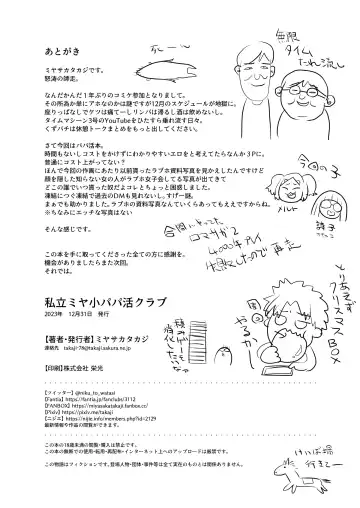 あとがき
ミヤサカタカジです。
怒涛の師走。
なんだかんだ1年ぶりのコミケ参加となりまして。
その所為か単にアホなのかは謎ですが12月のスケジュールが地獄に。
座りっぱなしでケツは痛てーしリンパは滞るし酒は飲めないし。
タイムマシーン3号のYouTubeをひたすら垂れ流す日々。
くずパチは休憩トークまとめをもっと出してください。
さて今回はパパ活本。
時間もないしコストをかけずにわかりやすいエロをと考えてたらなんか3Pに。
普通にコスト上がってない?
ほんで今回の作画にあたり以前買ったラブホ資料写真を見かえしたんですけど
顔を隠した知らない女の人がラブホ女子会してる写真が出てきて
どこの誰でいつ貰った奴だよコレとちょっと困惑しました。
凍結につぐ凍結で過去のDMも見れないし。すげー謎。
まぁでも助かりました。ラブホの資料写真なんていくらあってもええですからね。
※ちなみにエッチな写真はない
そんな感じです。
この本を手に取ってくださった全ての方に感謝を。
機会がありましたらまた次回。
それでは。
私立ミヤ小パパ活クラブ
2023年 12月31日 発行
【著者・発行者】ミヤサカタカジ
連絡先 takaji-78@takaji.sakura.ne.jp
【印刷】株式会社 栄光
【ツイッター】@nika_to_wataai
【Fantia】https://fantia.jp/fanclubs/3112
【FANBOX】https://miyasakatakaji.fanbox.cc/
【Pixiv】https://pixiv.me/takaji
【ニジエ】https://nijie.info/members.php?id=2129
最新情報や作品の閲覧ができます。
この本の18歳未満の閲覧・購入は禁止です。
この本の無断での使用・転用・再配布・インターネット上へのアップロードは厳禁です。
この物語はフィクションです。登場人物・団体・事件等は全て実在のものとは関係ありません。
無限
タイム
たれ流し
今回の子
メルト
詩子
今回いっきに
とりあえず
クリスマスBOX
やるか
積みゲーを
消化したいな
けいば場
行きてー